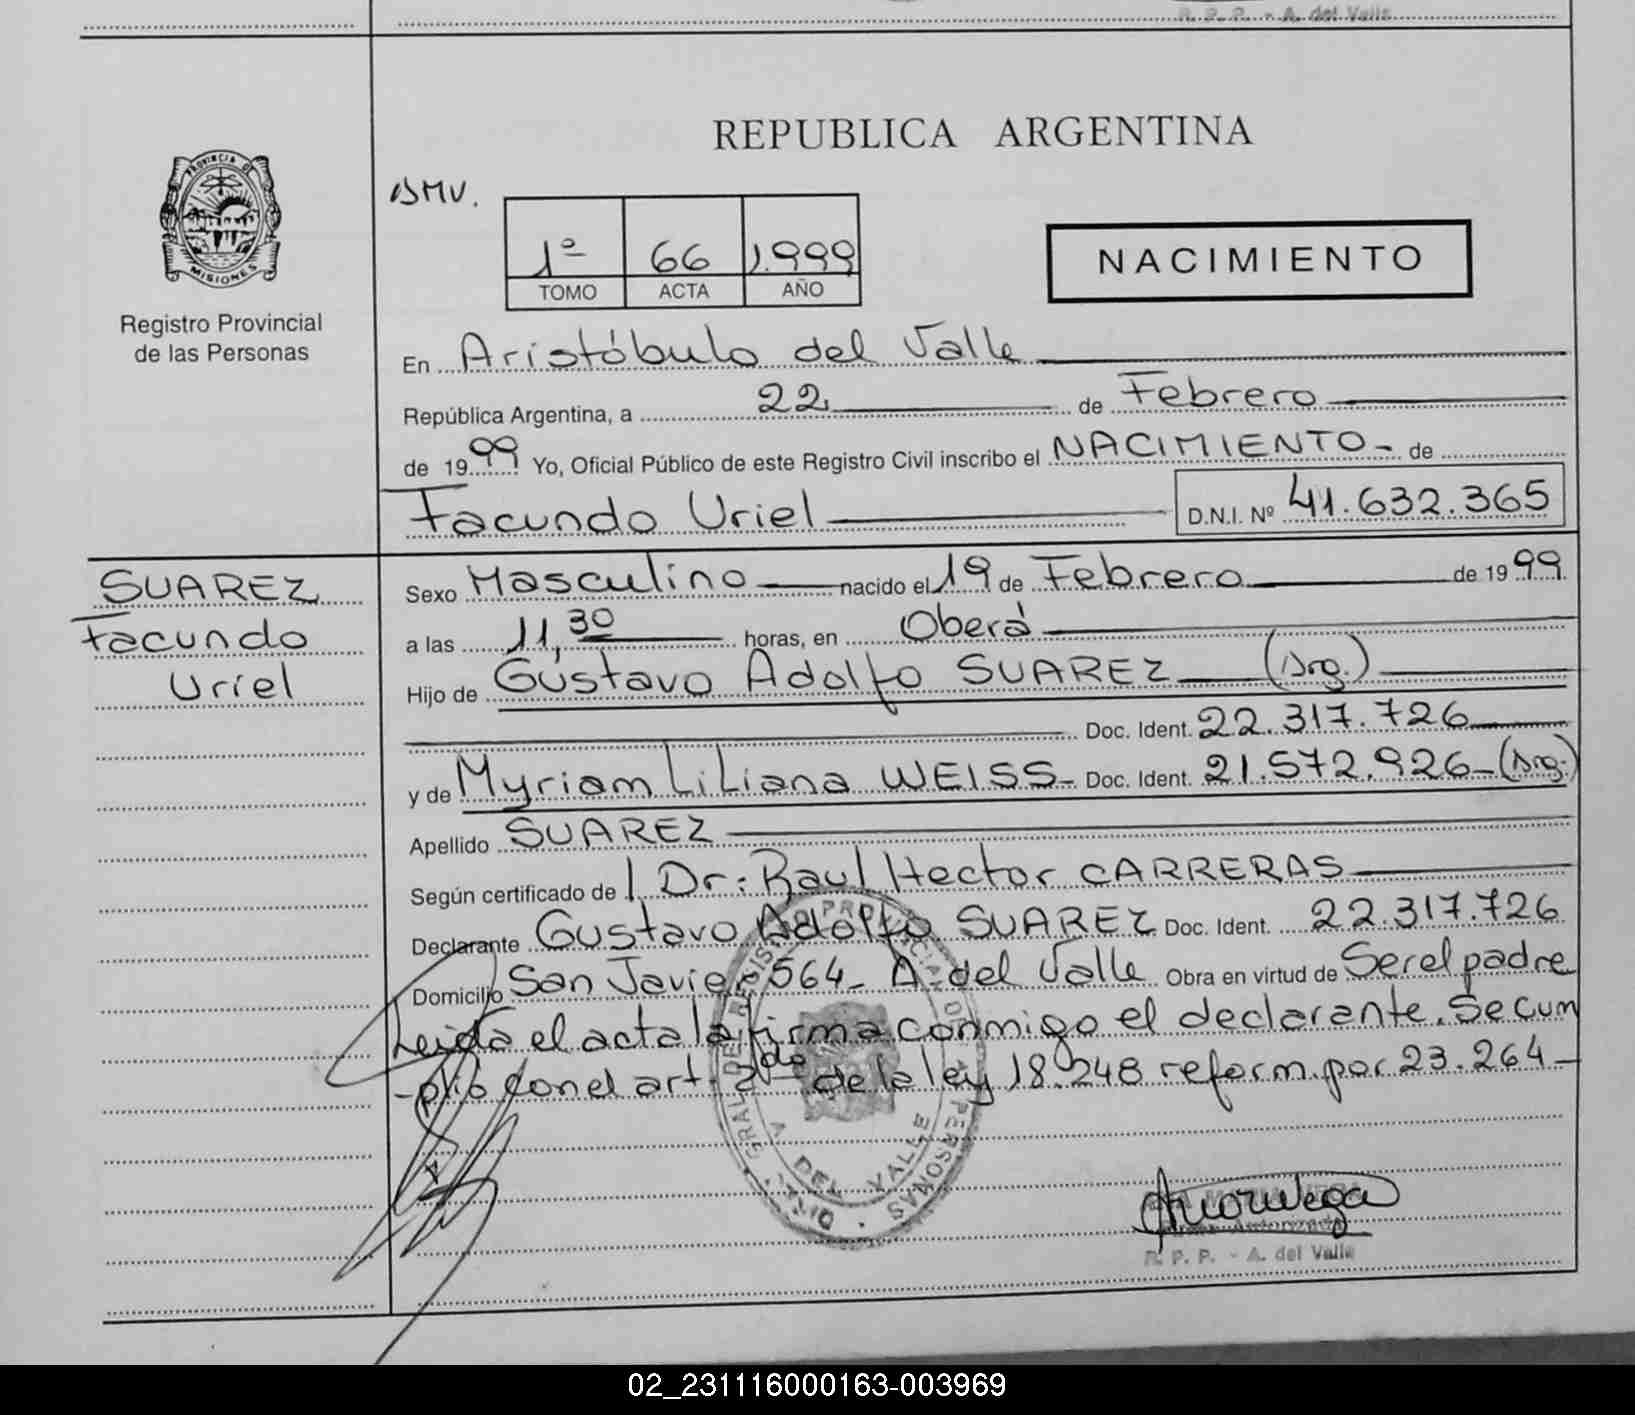 R. P. P. - A. del Valle
REPUBLICA ARGENTINA
PROVINCIA DE
MISIONES
Registro Provincial
de las Personas
BMV.
1º 66 1.999
TOMO ACTA AÑO
NACIMIENTO
En Aristóbulo del Valle
República Argentina, a 22 de Febrero
de 1999 Yo, Oficial Público de este Registro Civil inscribo el NACIMIENTO - de
Facundo Uriel D.N.I. Nº 41.632.365
SUAREZ
Facundo
Uriel
Sexo Masculino nacido el 19 de Febrero de 1999
a las 11,30 horas, en Oberá
Hijo de Gustavo Adolfo SUAREZ (Arg.)
Doc. Ident. 22.317.726
y de Myriam Liliana WEISS- Doc. Ident. 21.572.926-(Arg.)
Apellido SUAREZ
Según certificado de l Dr: Raul Hector CARRERAS
Declarante Gustavo Adolfo SUAREZ Doc. Ident. 22.317.726
Domicilio San Javier 564- A. del Valle Obra en virtud de Ser el padre
Leida el acta la firma conmigo el declarante. Se cum
-plio con el art. 2do de la ley 18.248 reform. por 23.264-
DEL VALLE
R. P. P. - A. del Valle
02_231116000163-003969